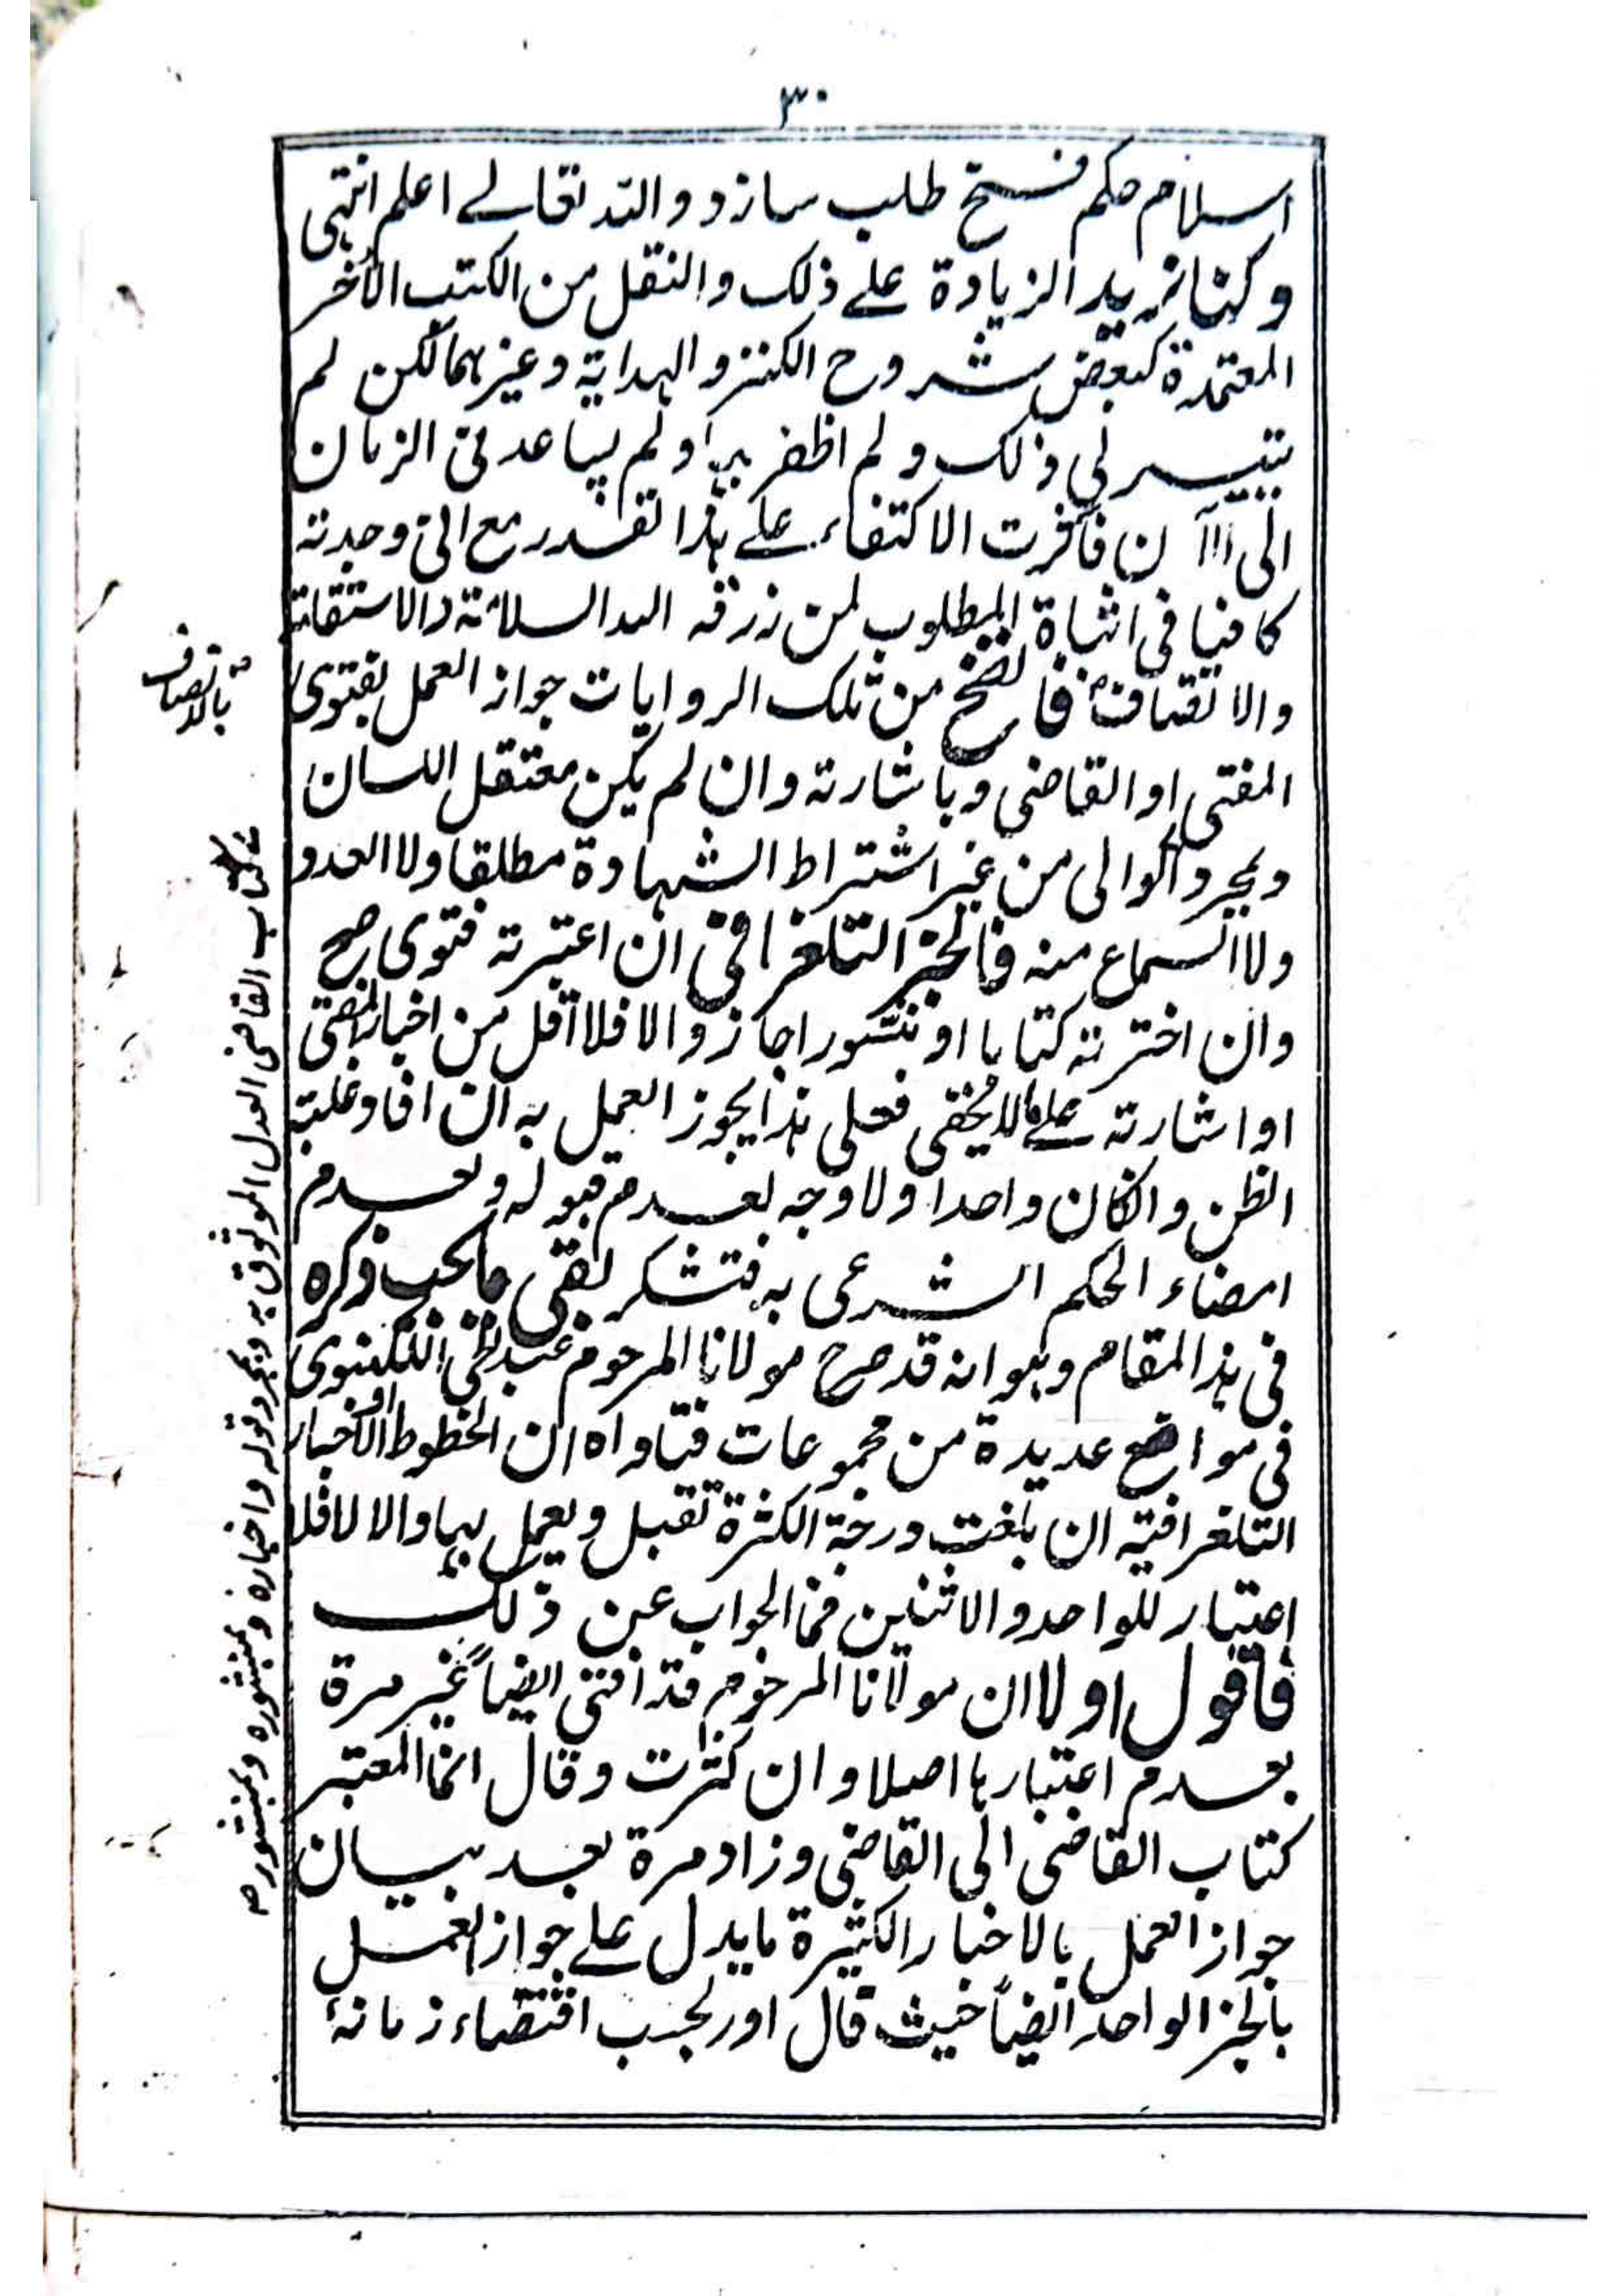 ٣٠
اسلام حکم فسخ طلب سازد والله تعالے اعلم انتهى
وكنا نريد الزيادة علے ذلك والنقل من الكتب الأخر
المعتمدة كبعض شروح الكنز والهداية وغيرهما لكن لم
يتيسر لي ذلك ولم اظفر بها ولم يساعدني الزمان
الى الآن فآثرت الاكتفاء علے هذا القدر مع انى وجدته
كافيا فى اثباة المطلوب لمن رزقه الله السلامة والاستقامة
والانصاف فاتضح من تلك الروايات جواز العمل بفتوى
المفتى او القاضى وباشارته وان لم يكن معتقل اللسان
وبمجرد الوالى من غير اشتراط الشهادة مطلقا ولا العدد
ولا السماع منه فالخبر التلغرافى ان اعتبرته فتوى صح
وان اخترته كتابا او منشورا جاز والا فلا اقل من اخبار المفتى
او اشارته علے مالا يخفى فعلى هذا يجوز العمل به ان افاد غلبة
الظن وانكان واحدا ولا وجه لعدم قبوله وبعدم
امضاء الحكم الشرعى به فتشكر بقى ما يجب ذكره
فى هذا المقام وهو انه قد صرح مولانا المرحوم عبد الحي اللكنوى
فى مواضع عديدة من مجموعات فتاواه ان الخطوط او الاخبار
التلغرافية ان بلغت درجة الكثرة تقبل ويعمل بها والا لا فلا
اعتبار للواحد والاثنين فما الجواب عن ذلك
فاقول اولا ان مولانا المرحوم قد افتى ايضاً غير مرة
بعدم اعتبارها اصلا وان كثرت وقال انما المعتبر
كتاب القاضى الى القاضى وزاد مرة بعد بيان
جواز العمل بالاخبار الكثيرة ما يدل علے جواز العمل
بالخبز الواحد ايضاً حيث قال اور بحسب اقتضاء زمانۂ
بالانصاف
كتاب القاضى العدل الموثوق به وبمجرد قوله واخباره وبمنشوره وبمنشوره